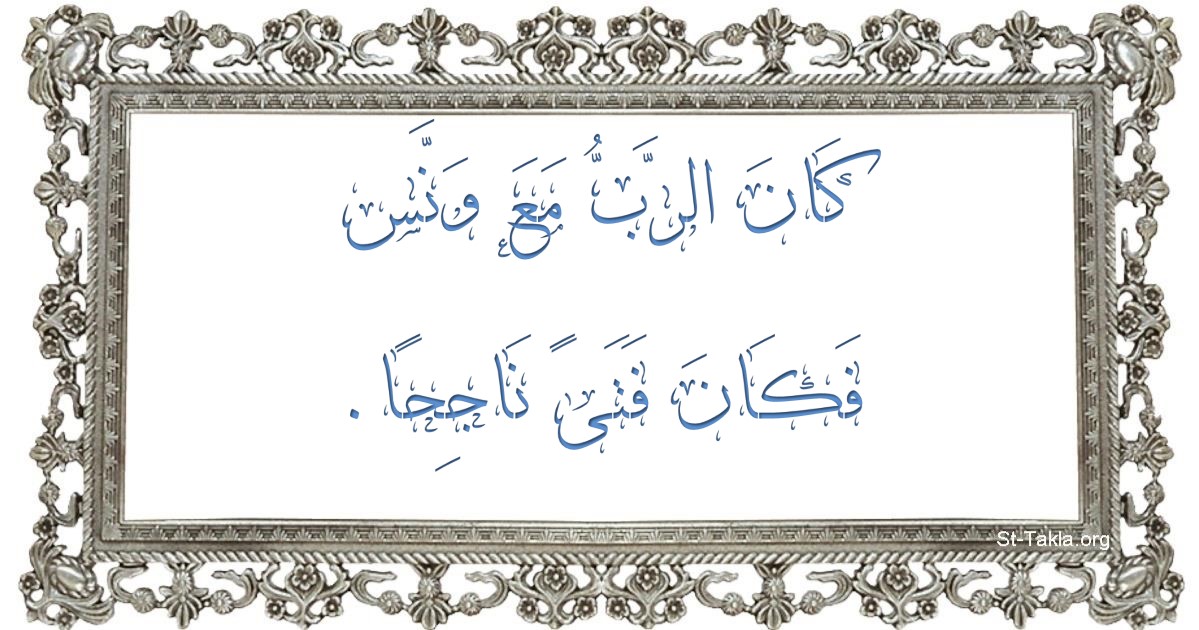 كَانَ الرَّبُّ مَعَ وَنَّس
فَكَانَ فَتَىً نَاجِحًا .
St-Takla.org